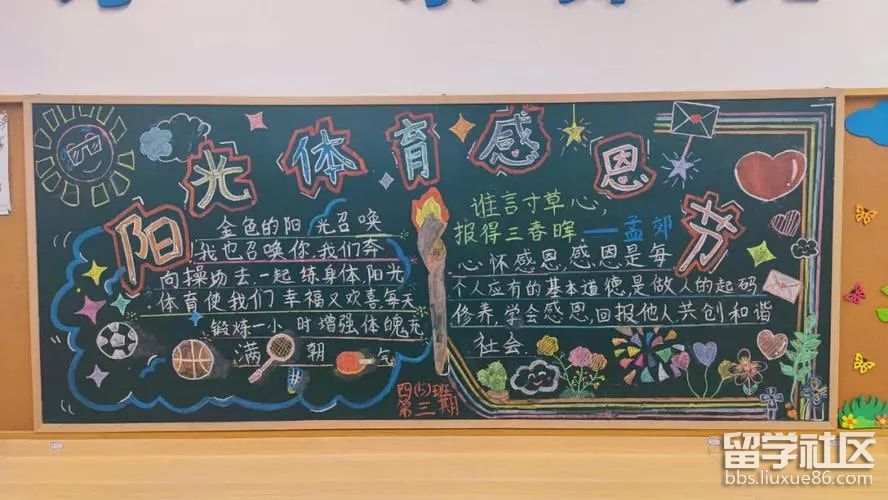 阳光体育感恩节
金色的阳光召唤
我也召唤你.我们奔
向操场去.一起练身体,阳光
体育使我们幸福又欢喜每天
锻炼一小时增强体魄充
满朝气
谁言寸草心,
报得三春晖——孟郊
心怀感恩,感恩是每
个人应有的基本道德,是做人的起码
修养,学会感恩,回报他人共创和谐
社会.
四(5)班
第三期
留学社区
bbs.liuxue86.com